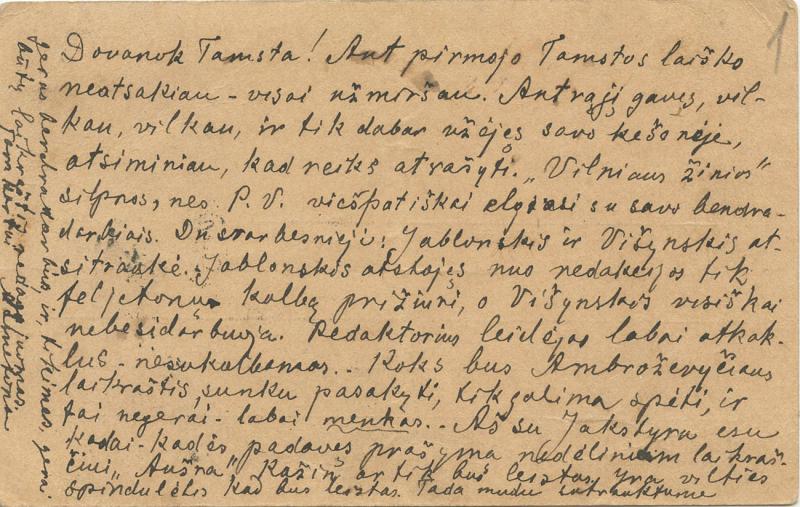 1
Dovanok Tamsta! Ant pirmojo Tamstos laiško
neatsakiau - visai užmiršau. Antrąjį gavęs, vil-
kau, vilkau, ir tik dabar užėjęs savo kešenėje,
atsiminiau, kad reiks atrašyti. „Vilniaus Žinios"
silpnos, nes P. V. viešpatiškai elgiasi su savo bendra-
darbiais. Du svarbesnieji: Jablonskis ir Višynskis at-
sitraukė. Jablonskis atstojęs nuo redakcijos tik
feljetonų kalbą prižiuri, o Višynskis visiškai
nebesidarbuoja. Redaktorius leidėjas labai atkak-
lus - nesukalbamas.. Koks bus Ambroževyčiaus
laikraštis, sunku pasakyti, tik galima spėti, ir
tai negerai - labai menkas.. Aš su Jakštu esu
kadai-kadės padavęs prašymą nedėliniam laikraš-
čiui „Aušra". Kažin ar tik bus leistas, yra vilties
spindulėlis kad bus leistas. Tada mudu sutrauktume
gerus bendradarbius ir, tikimės, gera.
butų laikraštis redaguojamas.